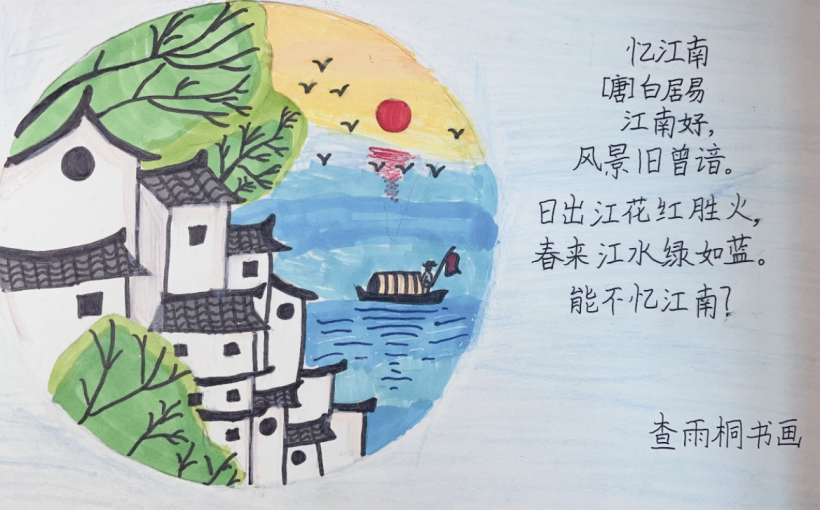 忆江南
[唐]白居易
江南好,
风景旧曾谙。
日出江花红胜火,
春来江水绿如蓝。
能不忆江南?
查雨桐书画